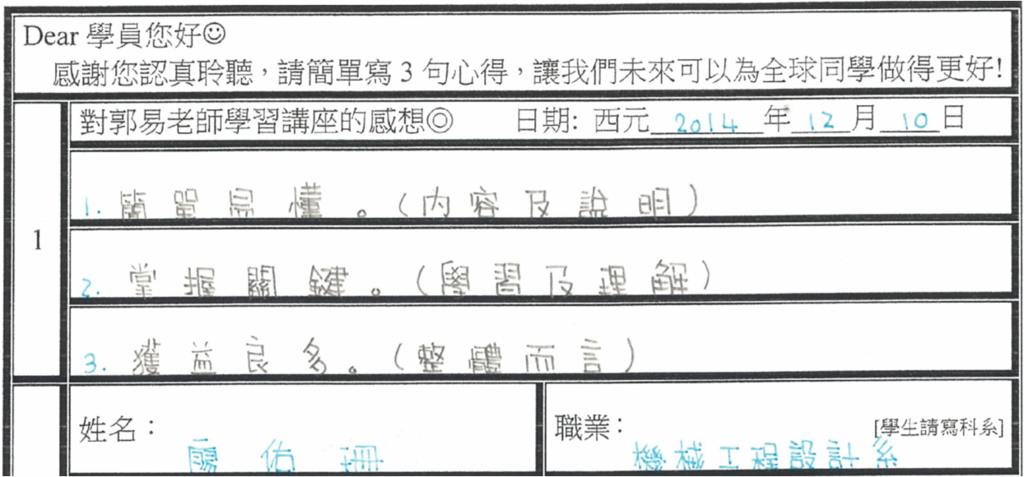 Dear 學員您好☺
感謝您認真聆聽，請簡單寫 3 句心得，讓我們未來可以為全球同學做得更好!
對郭易老師學習講座的感想◎ 日期: 西元 2014 年 12 月 10 日
1
1. 簡單易懂。(內容及說明)
2. 掌握關鍵。(學習及理解)
3. 獲益良多。(整體而言)
姓名： 廖佑珊 職業： [學生請寫科系]
機械工程設計系